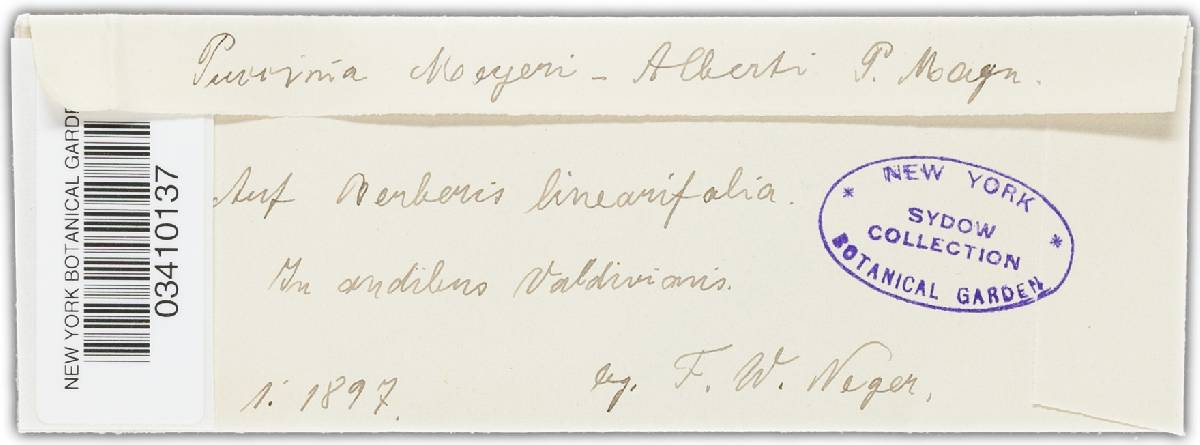 Puccinia Meyeri-Alberti P. Magn.
Auf Berberis linearifolia.
In andibus Valdivianis.
1. 1897.
leg. F. W. Neger.
NEW YORK
SYDOW
COLLECTION
BOTANICAL GARDEN
NEW YORK BOTANICAL GARDE
03410137